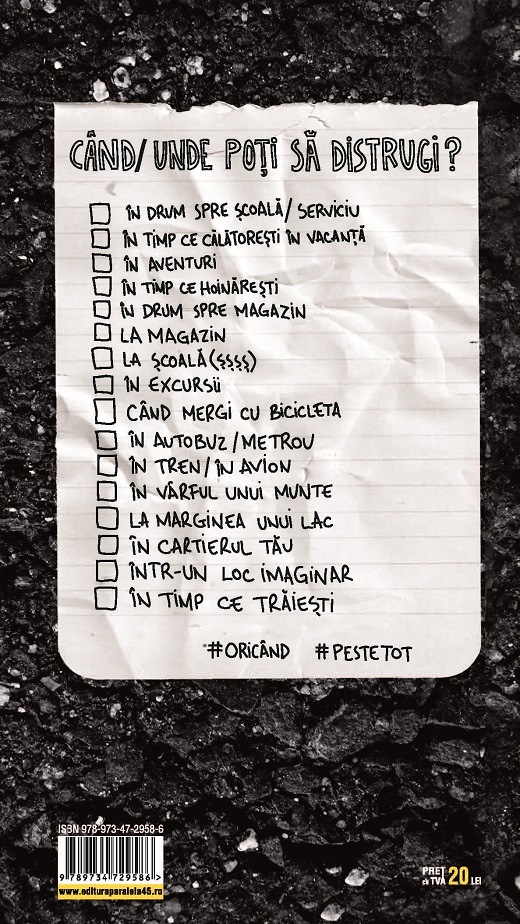 CÂND/ UNDE POȚI SĂ DISTRUGI?
ÎN DRUM SPRE ȘCOALĂ/ SERVICIU
ÎN TIMP CE CĂLĂTOREȘTI ÎN VACANȚĂ
ÎN AVENTURI
ÎN TIMP CE HOINĂREȘTI
ÎN DRUM SPRE MAGAZIN
LA MAGAZIN
LA ȘCOALĂ (ȘȘȘȘ)
ÎN EXCURSII
CÂND MERGI CU BICICLETA
ÎN AUTOBUZ /METROU
ÎN TREN/ ÎN AVION
ÎN VÂRFUL UNUI MUNTE
LA MARGINEA UNUI LAC
ÎN CARTIERUL TĂU
ÎNTR-UN LOC IMAGINAR
ÎN TIMP CE TRĂIEȘTI
#ORICÂND #PESTETOT
ISBN 978-973-47-2958-6
9 789734 729586 >
www.edituraparalela45.ro
PREȚ cu TVA 20 LEI